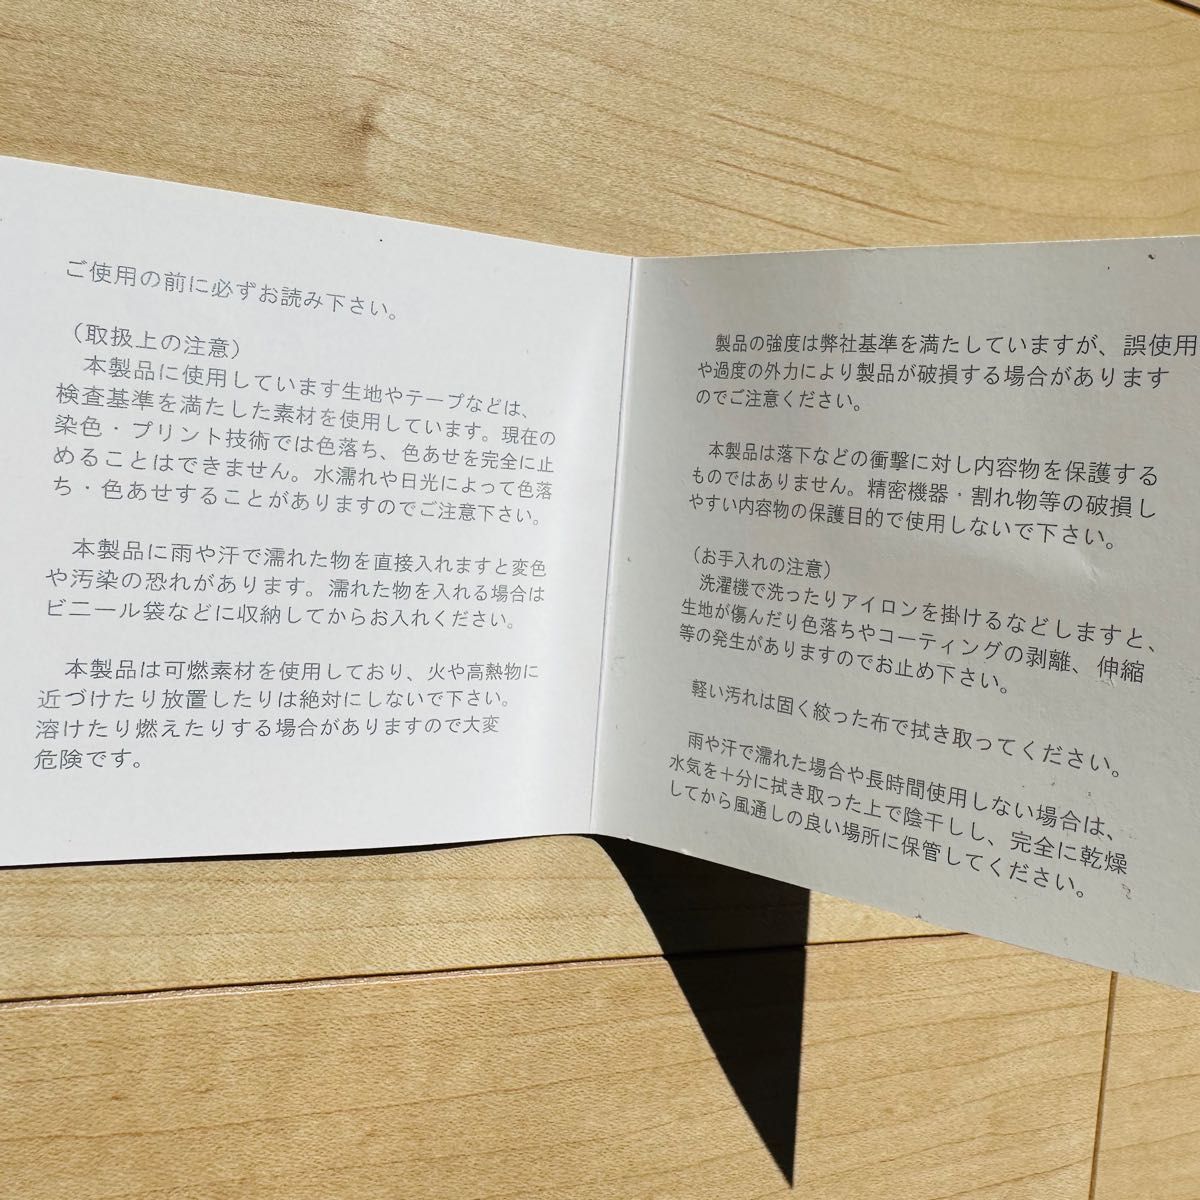 ご使用の前に必ずお読み下さい。
(取扱上の注意)
本製品に使用しています生地やテープなどは、
検査基準を満たした素材を使用しています。現在の
染色・プリント技術では色落ち、色あせを完全に止
めることはできません。水濡れや日光によって色落
ち・色あせすることがありますのでご注意下さい。
本製品に雨や汗で濡れた物を直接入れますと変色
や汚染の恐れがあります。濡れた物を入れる場合は
ビニール袋などに収納してからお入れください。
本製品は可燃素材を使用しており、火や高熱物に
近づけたり放置したりは絶対にしないで下さい。
溶けたり燃えたりする場合がありますので大変
危険です。
製品の強度は弊社基準を満たしていますが、誤使用
や過度の外力により製品が破損する場合があります
のでご注意ください。
本製品は落下などの衝撃に対し内容物を保護する
ものではありません。精密機器・割れ物等の破損し
やすい内容物の保護目的で使用しないで下さい。
(お手入れの注意)
洗濯機で洗ったりアイロンを掛けるなどしますと、
生地が傷んだり色落ちやコーティングの剥離、伸縮
等の発生がありますのでお止め下さい。
軽い汚れは固く絞った布で拭き取ってください。
雨や汗で濡れた場合や長時間使用しない場合は、
水気を十分に拭き取った上で陰干しし、完全に乾燥
してから風通しの良い場所に保管してください。